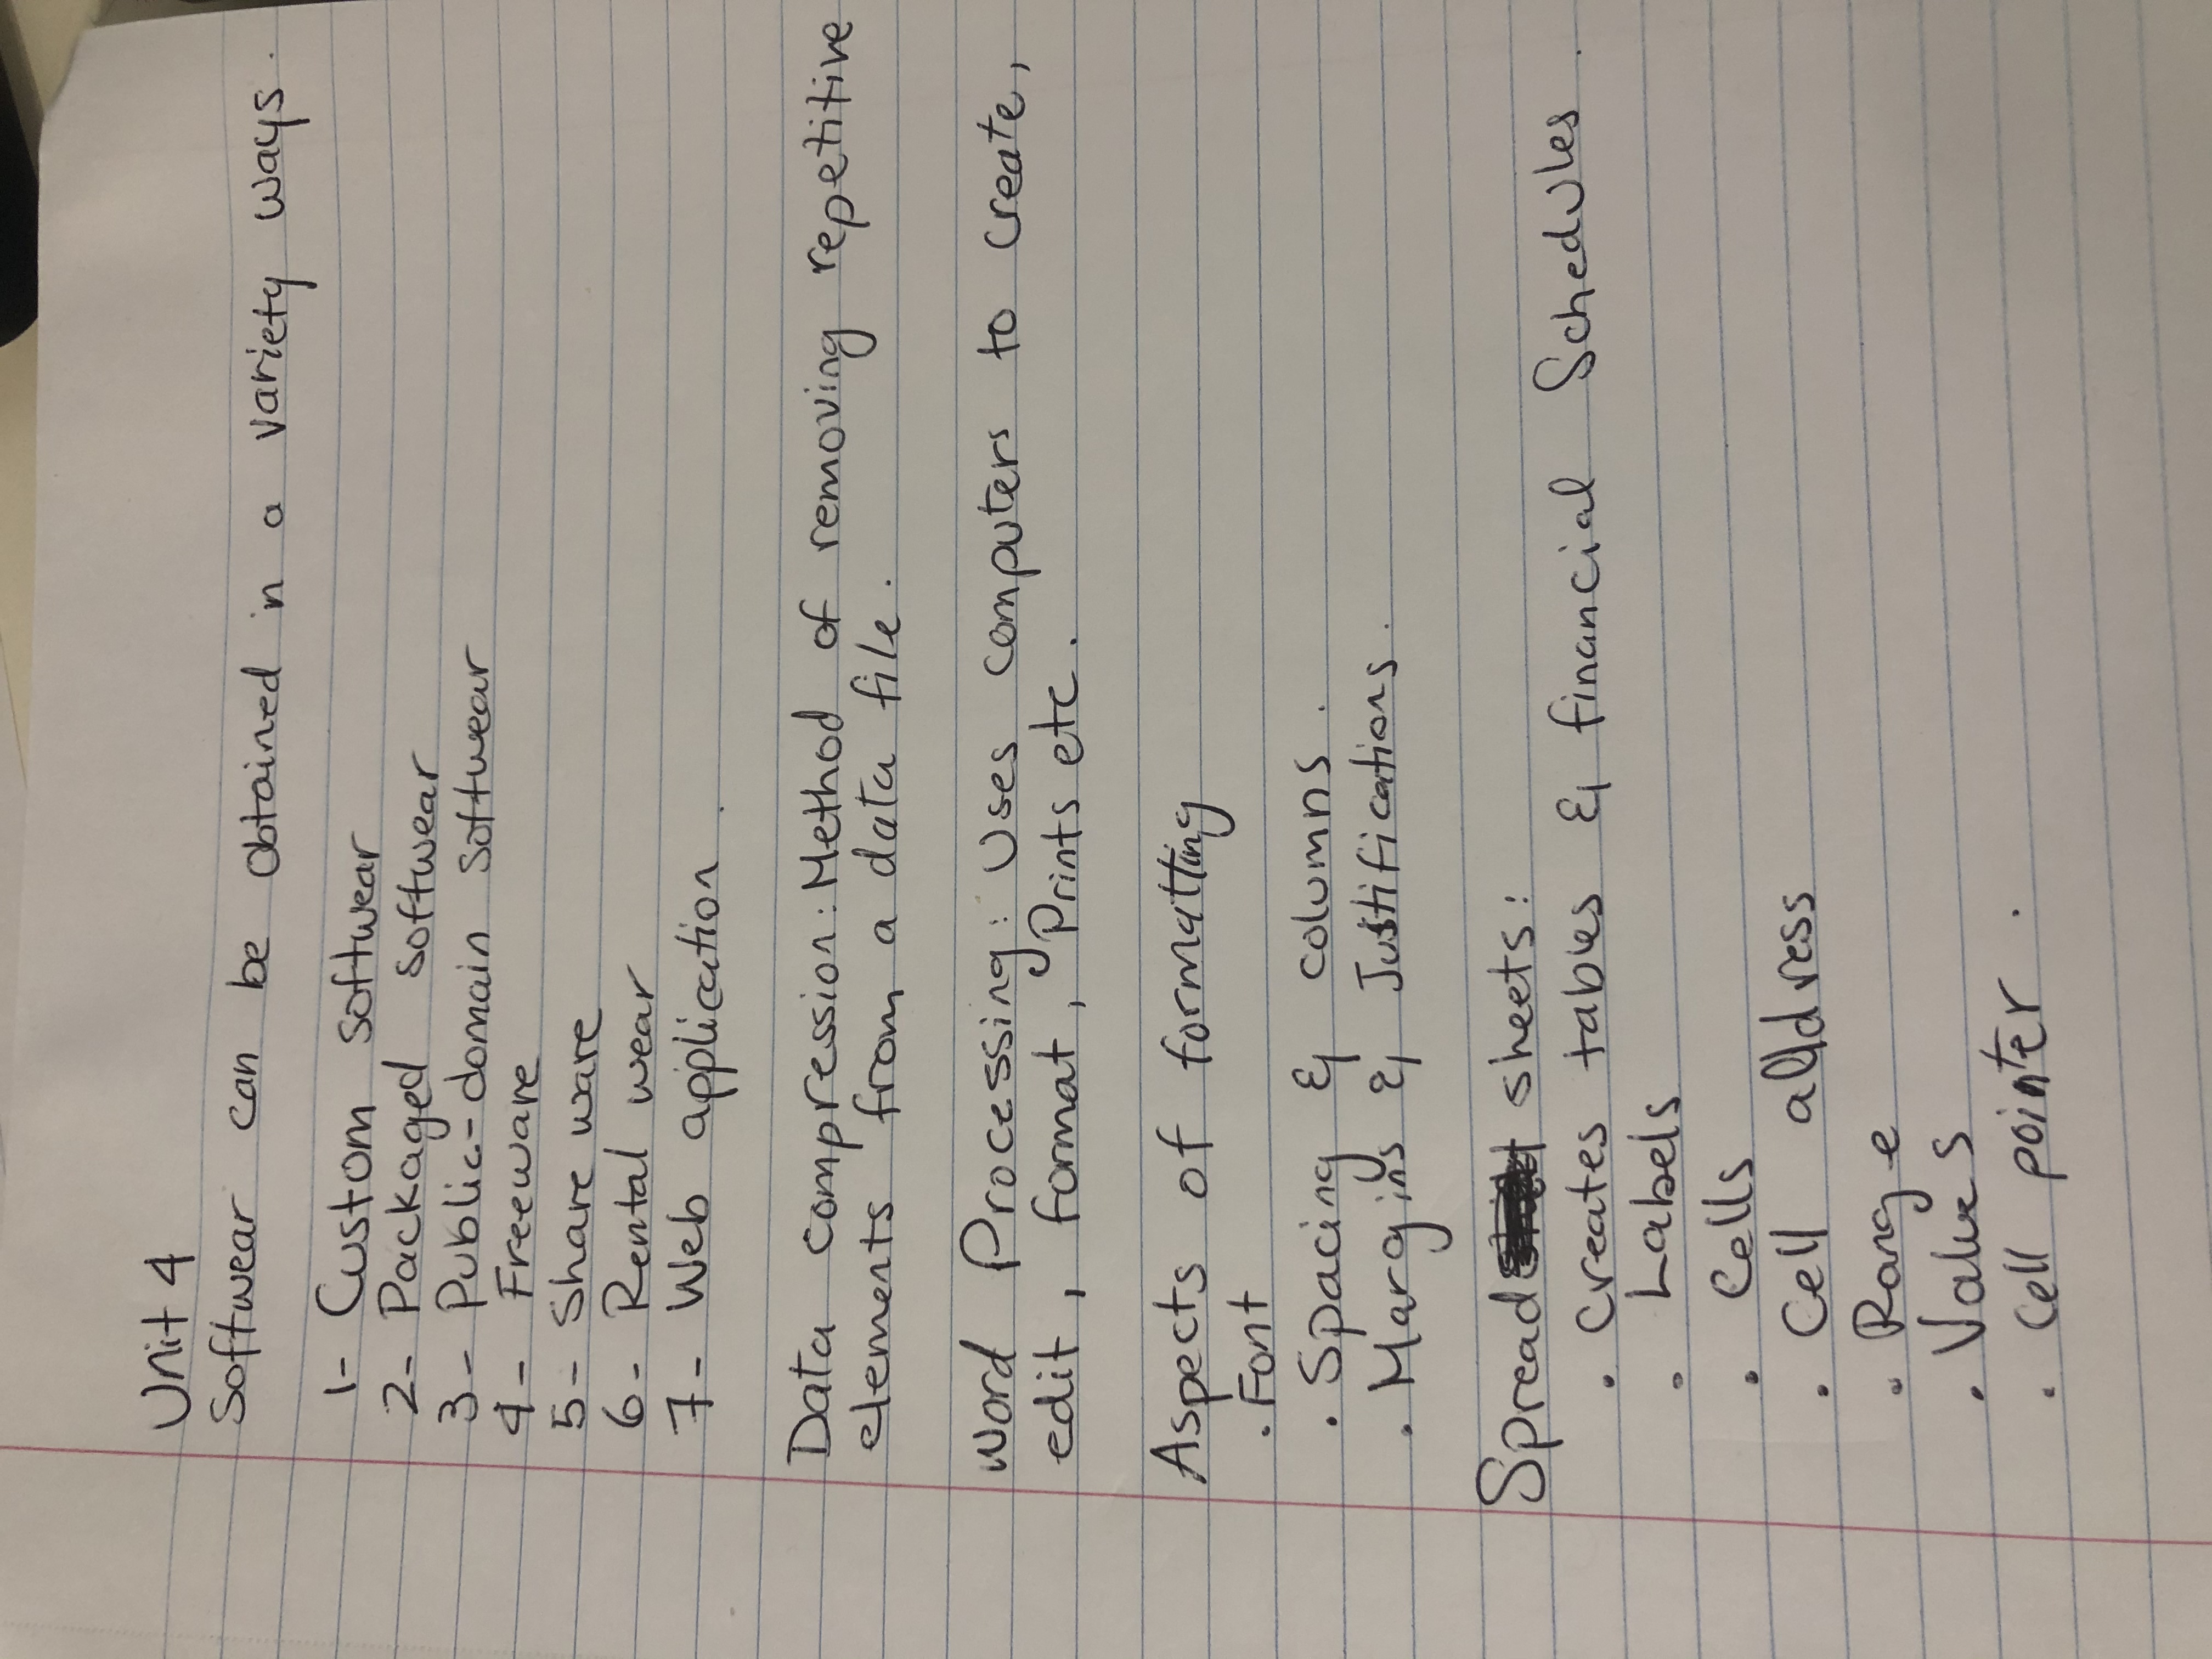 Unit 4
Softwear can be obtained in a variety ways.
1- Custom softwear
2- Packaged softwear
3- Public-domain softwear
4- Freeware
5- Share ware
6- Rental wear
7- Web application.
Data compression: Method of removing repetitive
elements from a data file.
Word Processing: Uses computers to create,
edit, format, Prints etc.
Aspects of formatting
• Font
• Spacing & columns.
• Margins & Justifications.
Spread sheets:
• Creates tables & financial Schedules.
• Labels
• Cells
• Cell address
• Range
• Values
• Cell pointer.